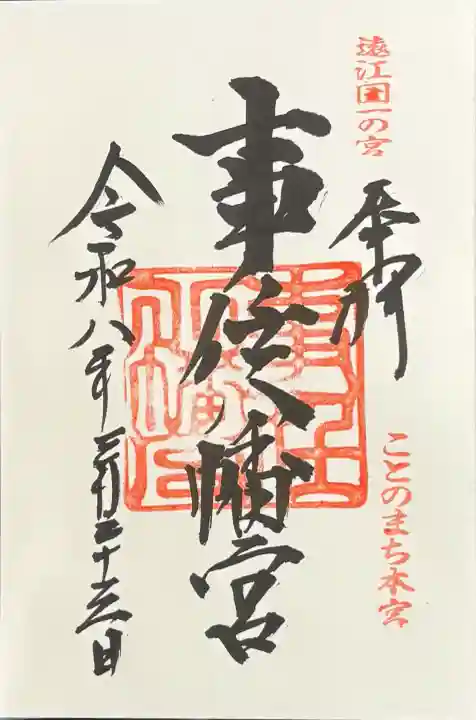 遠江国一の宮
奉拝
ことのまち本宮
事任八幡宮
令和八年三月二十六日